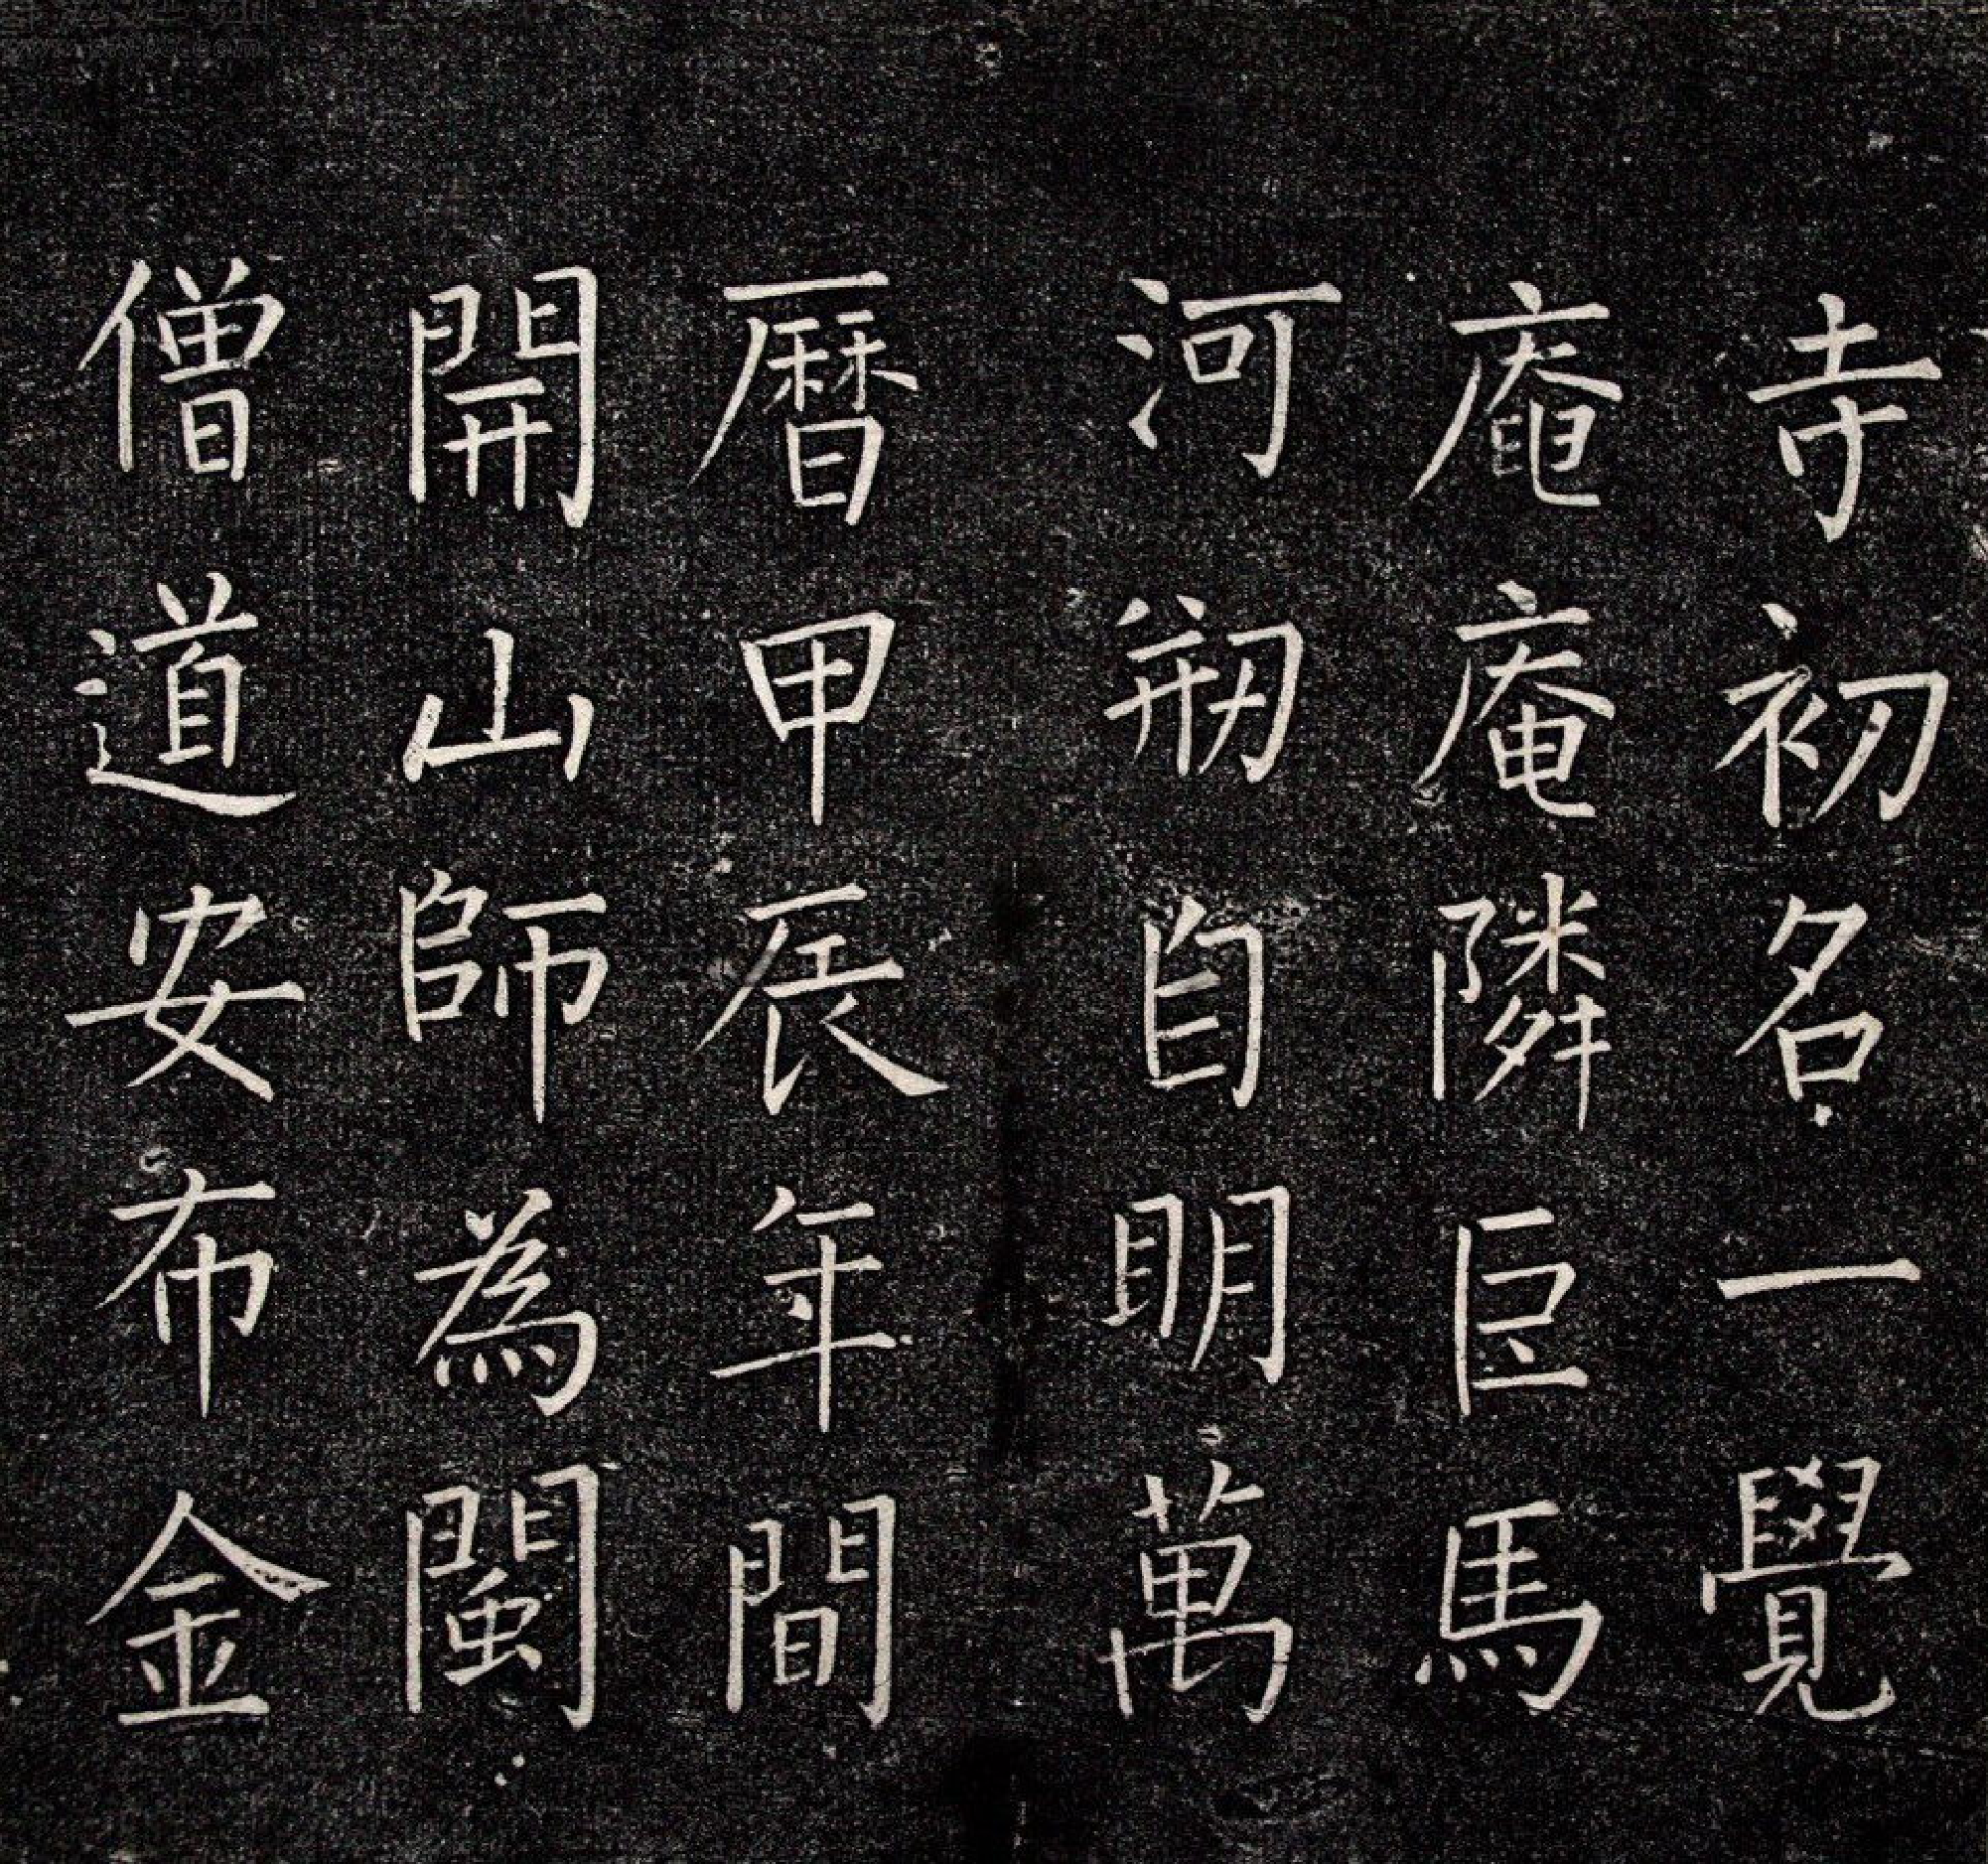 寺初名一覺
庵庵隣臣馬
河剏自明萬
曆甲辰年間
開山師為閩
僧道安布金